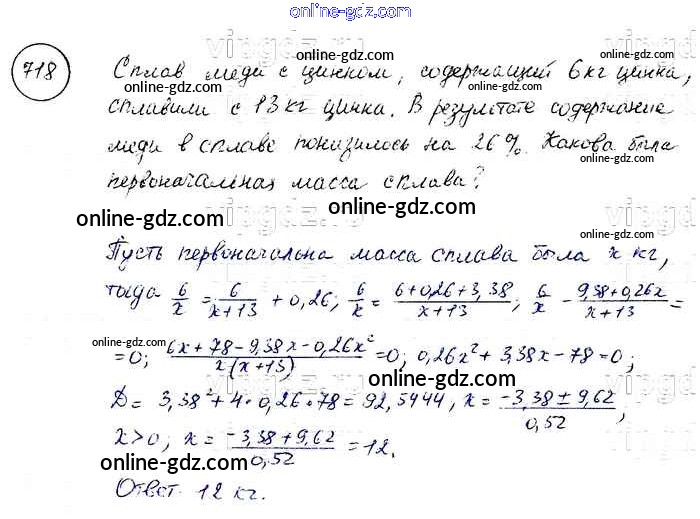 online-gdz.com
718
Сплав меди с цинком, содержащий 6 кг цинка,
сплавили с 13 кг цинка. В результате содержание
меди в сплаве понизилось на 26%. Какова была
первоначальная масса сплава?
online-gdz.com
online-gdz.com
Пусть первоначальна масса сплава была x кг,
тогда 6/x = 6/(x+13) + 0,26; 6/x = (6+0,26+3,38)/(x+13); 6/x - (9,38+0,26x)/(x+13) =
= 0; (6x+78-9,38x-0,26x²)/(x(x+13)) = 0; 0,26x²+3,38x-78=0;
D = 3,38²+4·0,26·78 = 92,5444, x = (-3,38±9,62)/0,52;
x>0; x = (-3,38+9,62)/0,52 = 12.
online-gdz.com
Ответ. 12 кг.
online-gdz.com